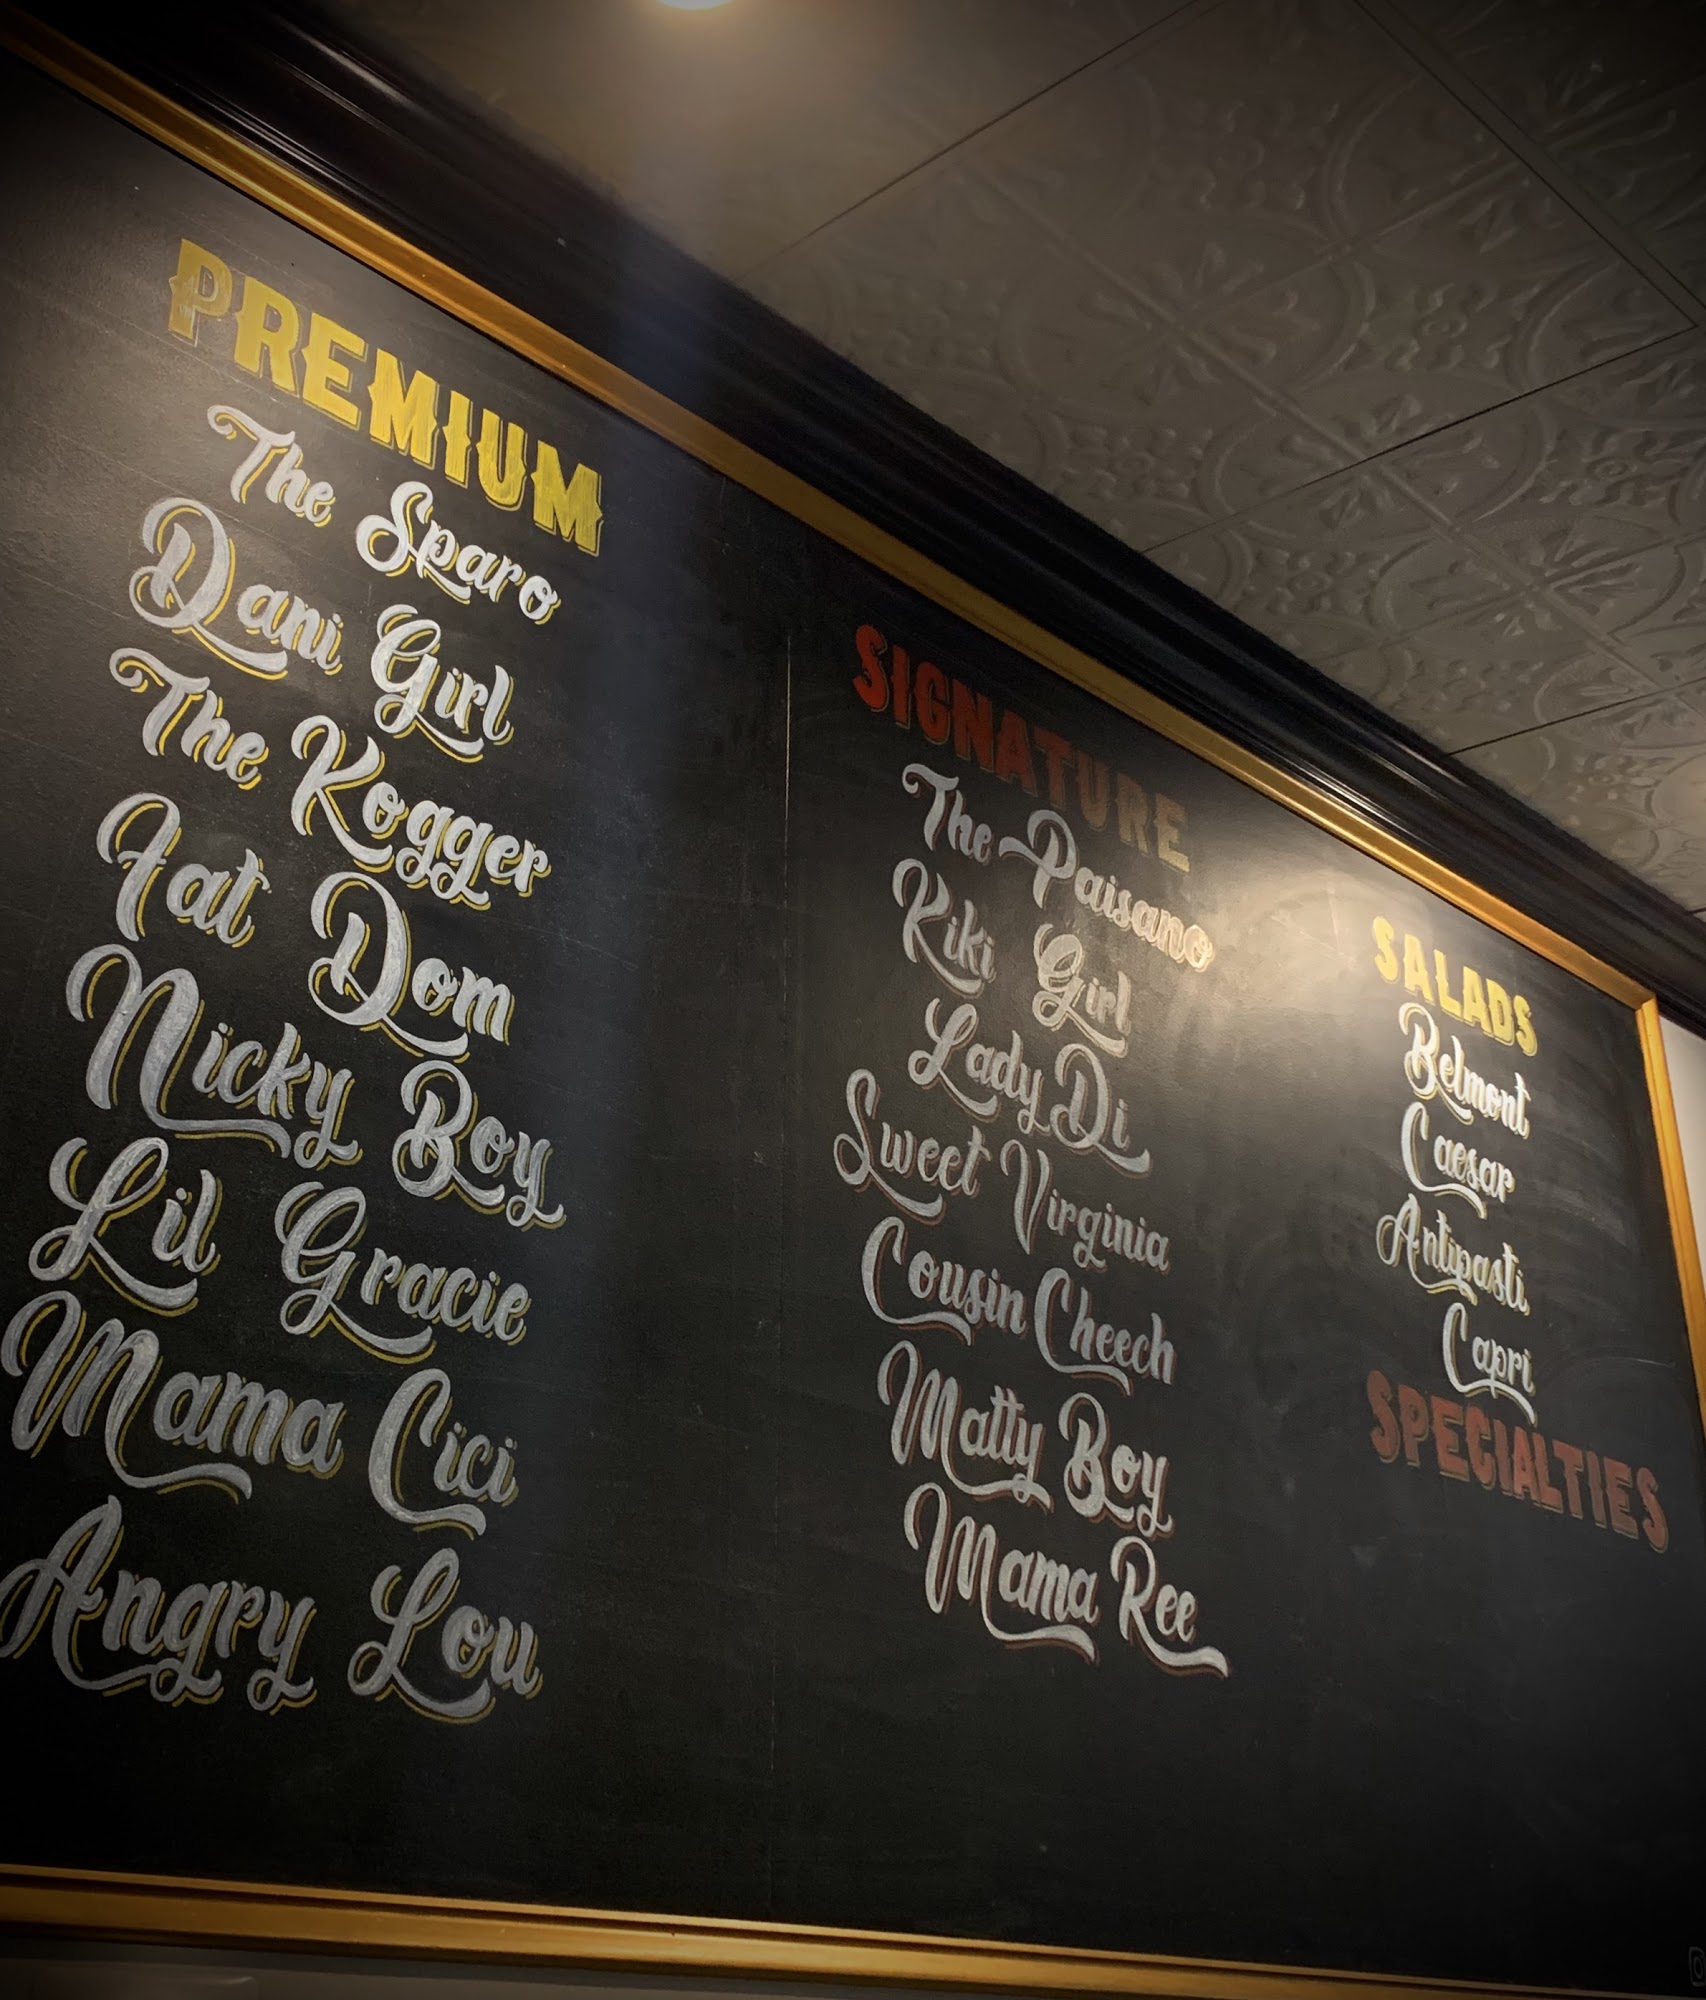 PREMIUM
The Sparo
Dani Girl
The Kogger
Fat Dom
Nicky Boy
Lil Gracie
Mama Cici
Angry Lou
SIGNATURE
The Paisano
Kiki Girl
Lady Di
Sweet Virginia
Cousin Cheech
Matty Boy
Mama Ree
SALADS
Belmont
Caesar
Antipasti
Capri
SPECIALTIES